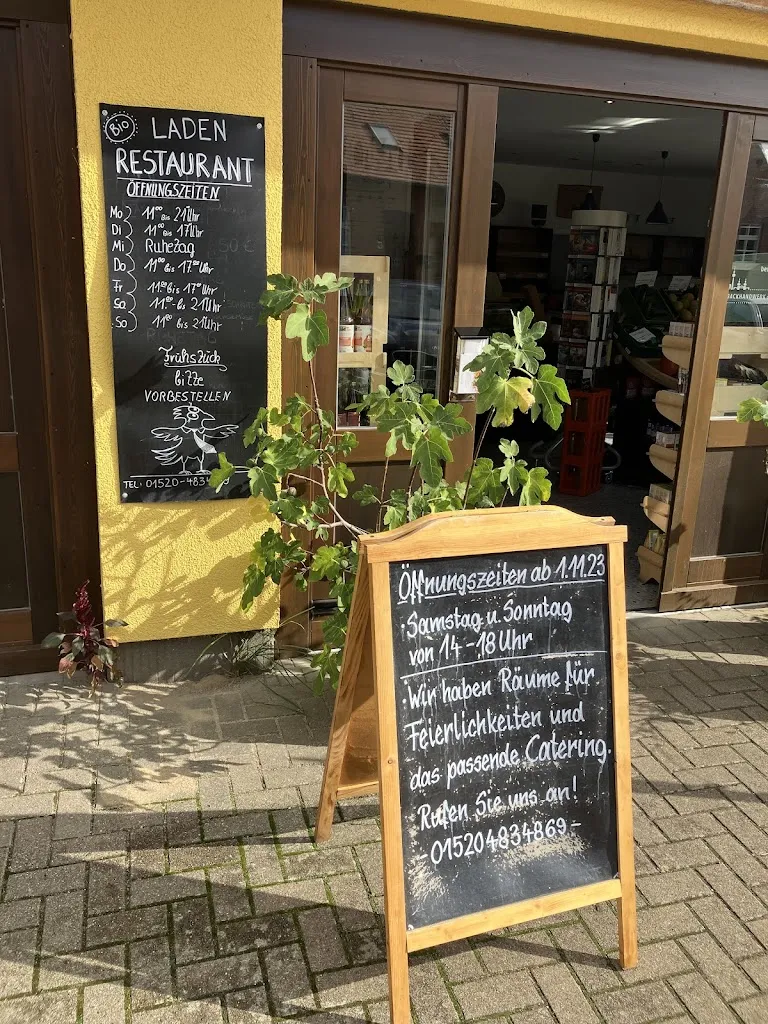 BIO
LADEN
RESTAURANT
ÖFFNUNGSZEITEN
Mo 11 00 bis 21 Uhr
Di 11 00 bis 17 Uhr
Mi Ruhetag
Do 11 00 bis 17 00 Uhr
Fr 11 00 bis 17 00 Uhr
Sa 11 00 bis 21 Uhr
So 11 00 bis 21 Uhr
Frühstück
bitte
VORBESTELLEN
TEL: 01520-4834
Öffnungszeiten ab 1.11.23
· Samstag u. Sonntag
von 14 - 18 Uhr
· Wir haben Räume für
Feierlichkeiten und
das passende Catering.
Rufen Sie uns an!
- 01520 4834869 -
BACKHANDWERK